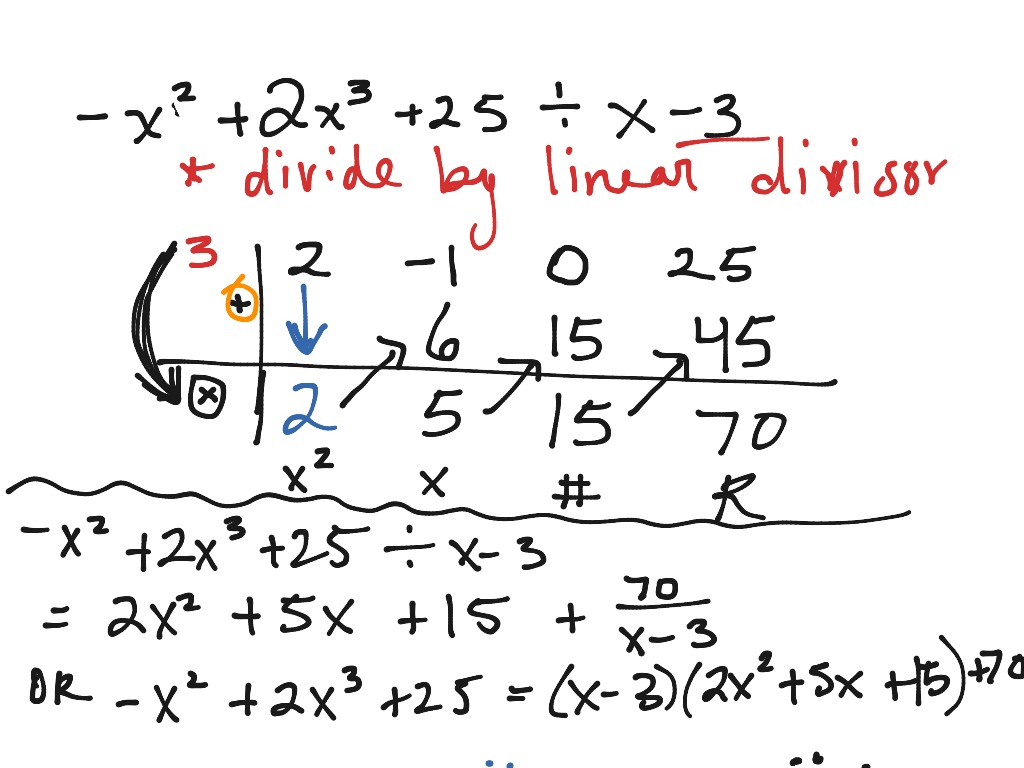 - x² + 2x³ + 25 ÷ x - 3
* divide by linear divisor
3 2 -1 0 25
+ 6 15 45
x 2 5 15 70
x² x # R
- x² + 2x³ + 25 ÷ x - 3
= 2x² + 5x + 15 + 70/(x - 3)
OR - x² + 2x³ + 25 = (x - 3)(2x² + 5x + 15) + 70